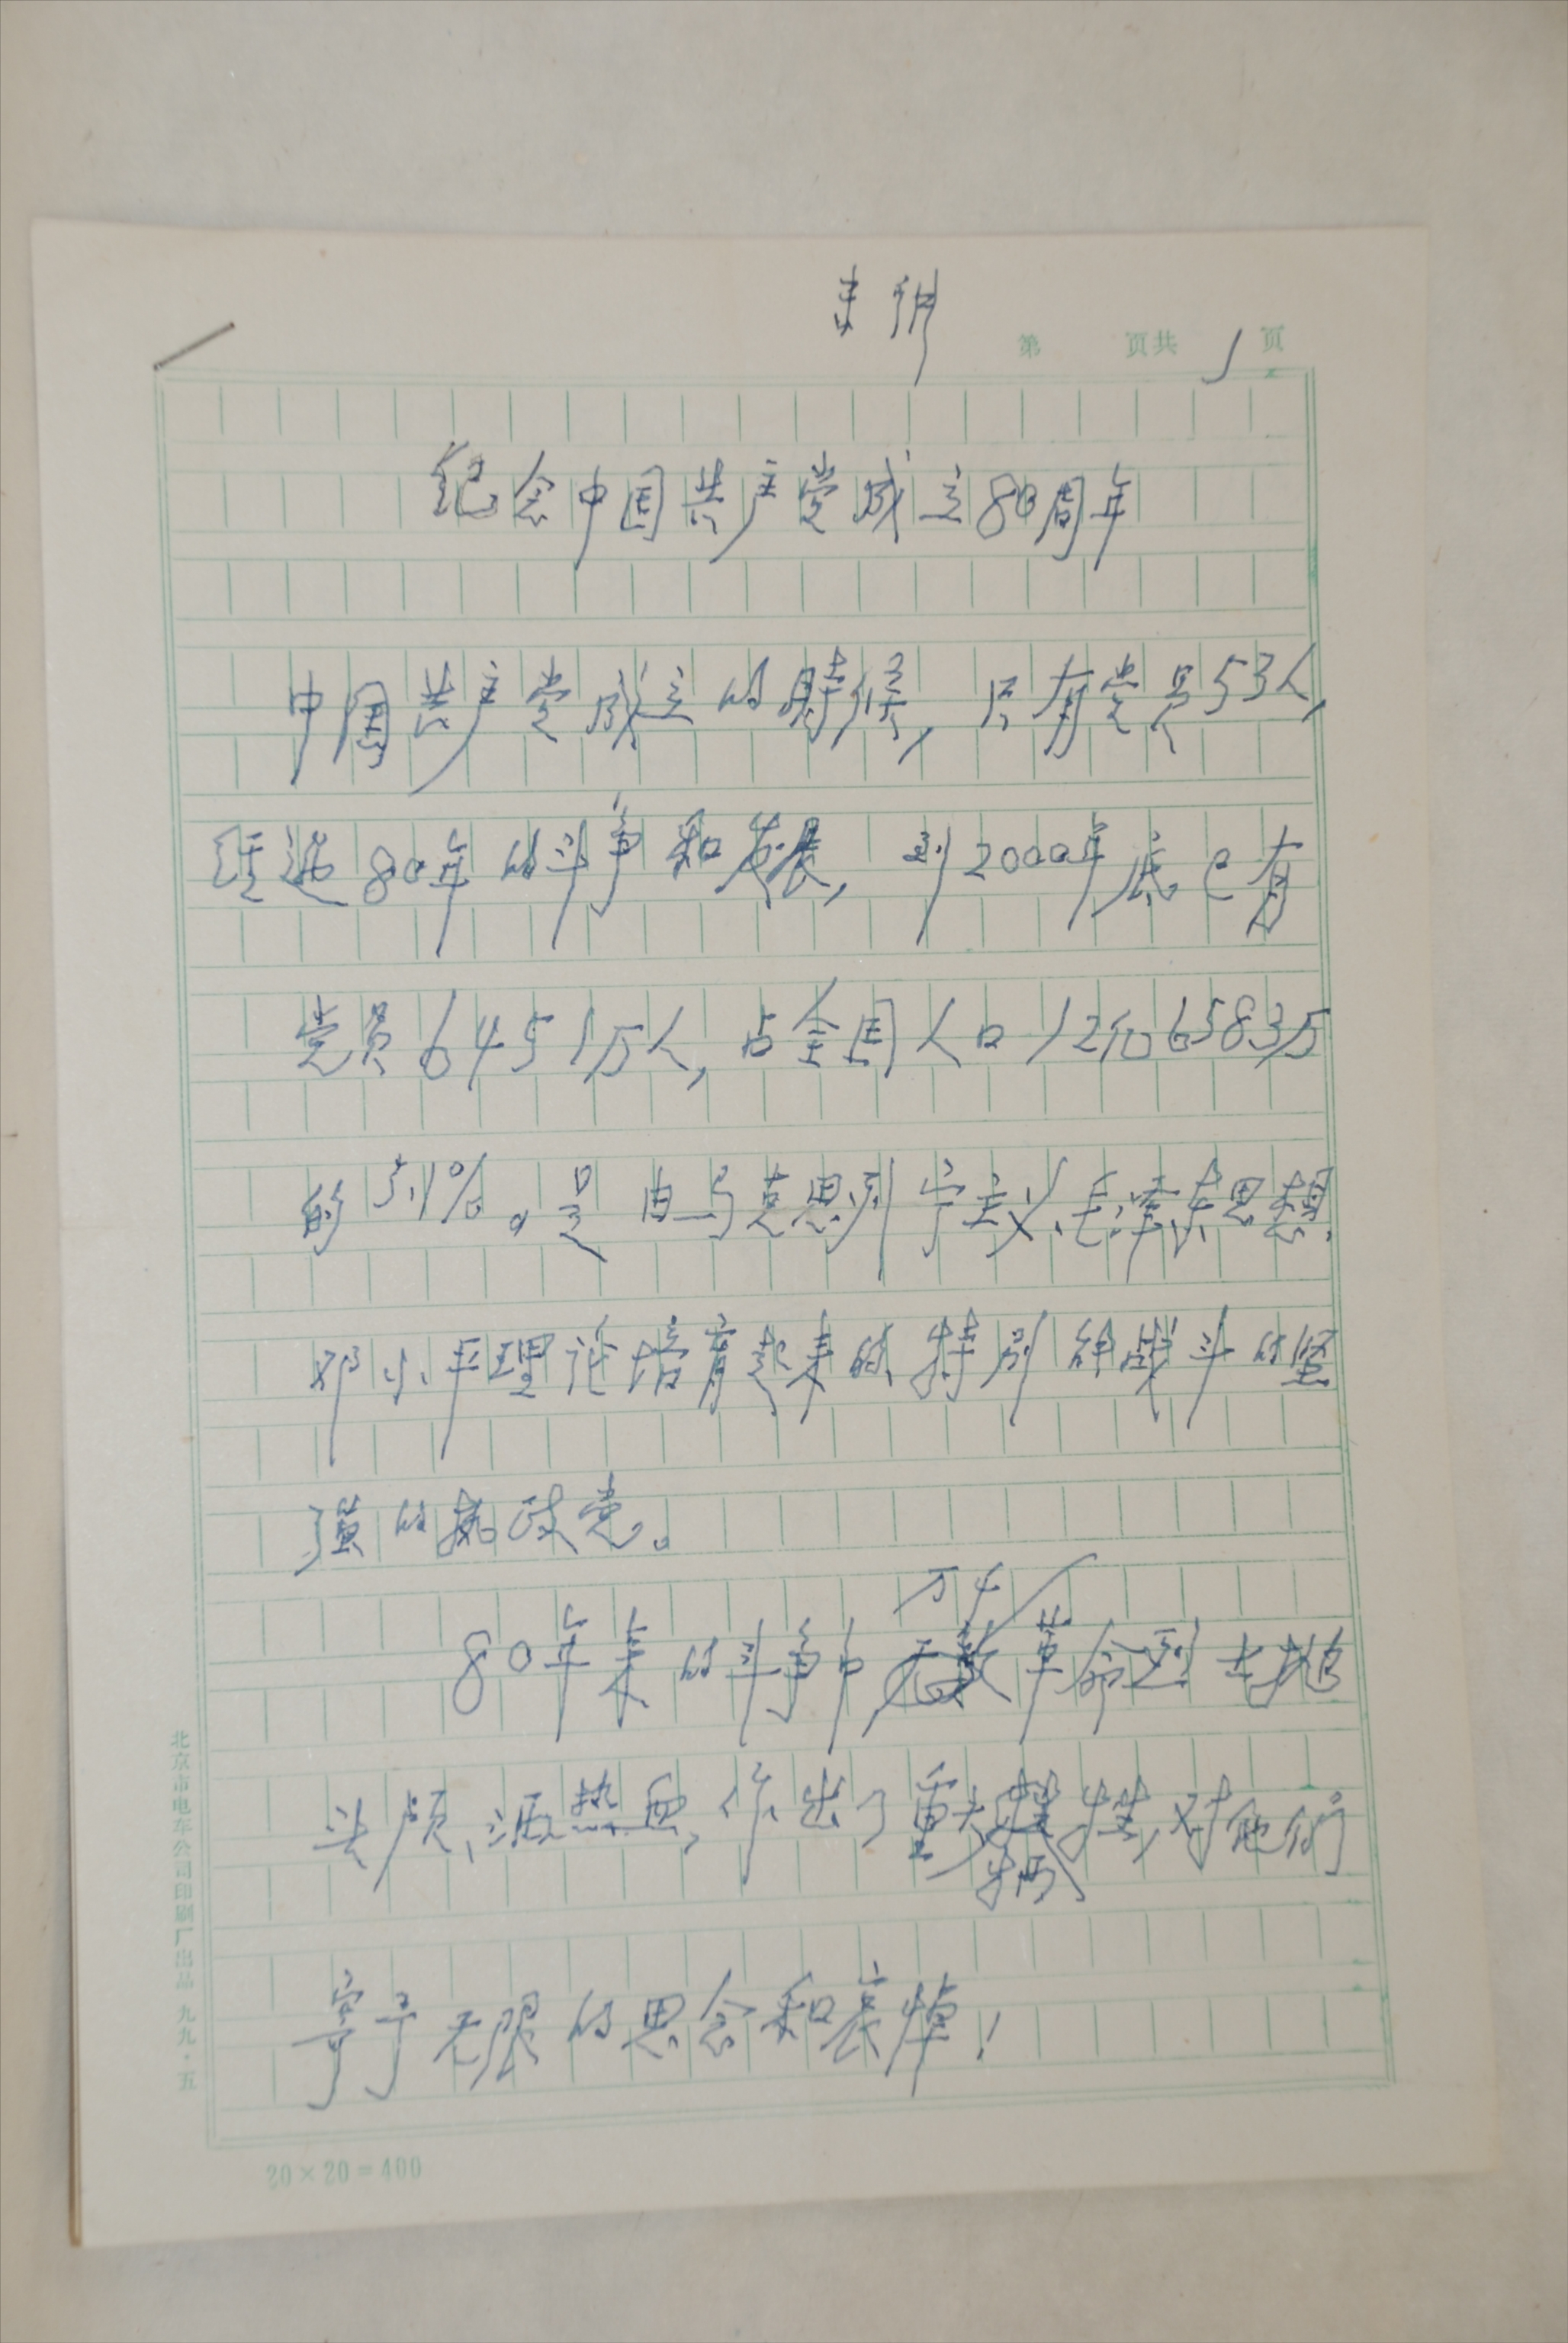 第 页共 1 页
纪念中国共产党成立80周年
中国共产党成立的时候,只有党员53人,
经过80年的斗争和发展,到2000年底已有
党员6451万人,占全国人口12亿6583万
的5.1%。是由马克思列宁主义、毛泽东思想、
邓小平理论培育起来的、特别能战斗的坚
强的执政党。
万千
80年来的斗争中,无数革命烈士抛
头颅、洒热血,作出了重大牺牲,对他们
牺
寄予无限的思念和哀悼!
北京市电车公司印刷厂出品 九九·五
20×20=400